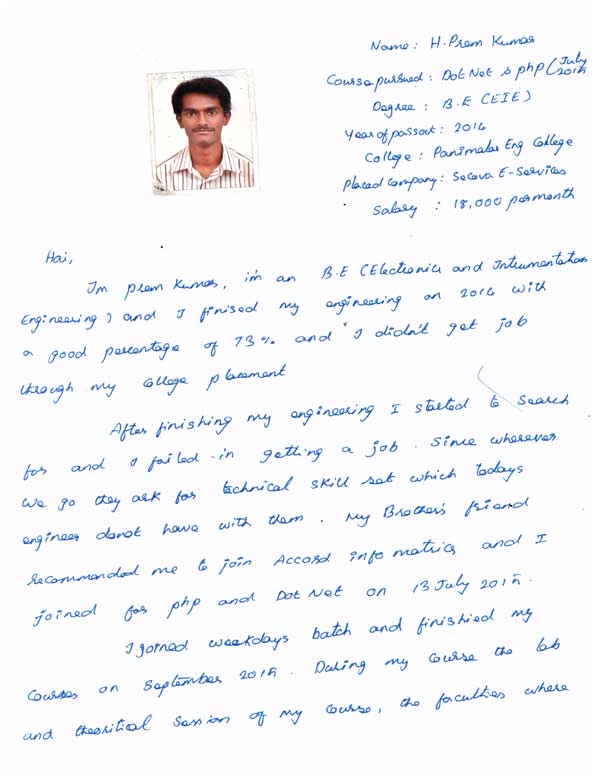 Name : H. Prem Kumar
Course pursued : Dot Net & php (July 2015)
Degree : B.E (EIE)
Year of passout : 2014
College : Panimalar Eng College
Placed Company : Secova E-Services
Salary : 18,000 per month
Hai,
I'm prem kumar, i'm an B.E (Electronics and Intrumentation
Engineering) and I finised my engineering on 2014 with
a good percentage of 73% and I didn't get job
through my college placement
After finishing my engineering I started to search
for and I failed in getting a job. Since wherever
we go they ask for technical skill set which todays
engineer donot have with them. My Brother's friend
recommended me to join Accord info matrics and I
joined for php and Dot Net on 13 July 2015.
I joined weekdays batch and finishied my
courses on September 2015. During my course the lab
and theoritical session of my course, the faculties where